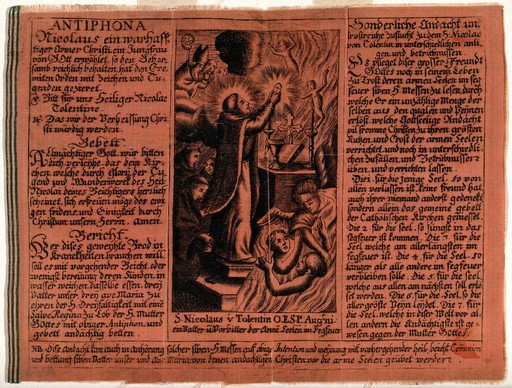 ANTIPHONA
Nicolaus ein warhaff
tiger Armer Christi, ein Jungfrau
von Gott erwählet, so den Gehor
samb treülich behalten, hat den Ere
miten Orden mit Zeichen und Tu
genden gezieret.
℣ Bitt für uns Heiliger Nicolae
Tolentine
℟ Das wir der Verheissung Chri
sti würdig werden.
Gebett.
Allmächtiger Gott, wir bitten
dich verleyhe das dein Kir
chen, welche durch Glory der Tu
gend und Wunderwerck des Heil
Nicolai deines Beichtigers herzlich
scheinet, sich erfreüen möge des ewi
gen friden, und Einigkeit durch
Christum unsern Herrn. Amen.
Bericht.
Wer dises geweyhte Brod in
Kranckheiten brauchen will,
soll es mit vorgehender Beicht, oder
wenigst bereüung seiner Sünden, in
wasser weichen, dasselbe essen, drey
Vatter unser, drey ave Maria zu
Ehren der H. Dreyfaltigkeit, und ein
Salve Regina zu Lob der H. Mutter
Gottes mit obiger Antiphon, und
gebett andächtig betten.
S. Nicolaus v Tolentin O.E.S.P. Augni.
ein Vatter u Vorbitter der Armē Seelen im Fegfeuer
Sonderliche Andacht un,
trostreiche Zuflucht zu dem H. Nicolao
von Tolentin, in unterschidlichen anli,
gen, und betrübnussen.
Es pflegt diser grosser Freündt
Gottes noch in seinem Leben
zu Trost deren armen Seelen im Feg
feüer siben H. Messen zu lesen, durch
welche Er ein unzählige Menge der
selben aus den qualen und Peinen
erlöst, welche Gottseelige Andacht
vil fromme Christen zu ihren grösten
Nuzen, und Trost der armen Seelen
verrichtet, und noch in unterschidli
chen Zufällen, und Betrübnussen
üben, und verrichten lassen.
Die 1. für die jenige Seel, so von
allen verlassen ist, keine freünd hat,
auch ihrer niemand anderst gedenckt
sondern allein das gemeine gebett
der Catholischen Kirchen geniesset.
Die 2. für die seel, so jüngst in das
fegfeüer ist kommen. Die 3. für die
Seel welche am allerlängsten im
fegfeüer ist. Die 4. für die Seel, so
länger als alle andere im fegfeüer
verbleiben solle. Die 5. für die seel,
welche aus allen am nächsten soll erlö
st werden. Die 6. für die Seel, so die
aller gröste Pein leydet. Die 7. für
die Seel, welche in diser Welt vor al
len andern die Andächtigste ist ge
wesen gegen der Mutter Gottes.
NB. Dise Andacht kan auch in anhörung solcher siben H. Messen auf obige Intention und meinung mit vorhergehender heil: beicht Commun:
und bettung siben Vatter unser und Ave Maria von denen andächtigen Christen vor die arme Seelen geübet werden.